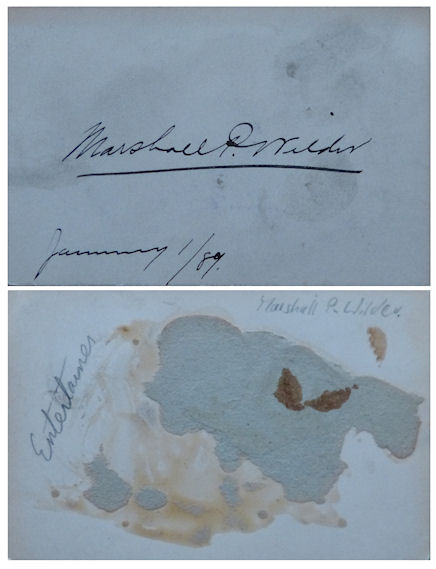 Marshall P. Wilder
January 1/89.
Marshall P. Wilder.
Entertainer